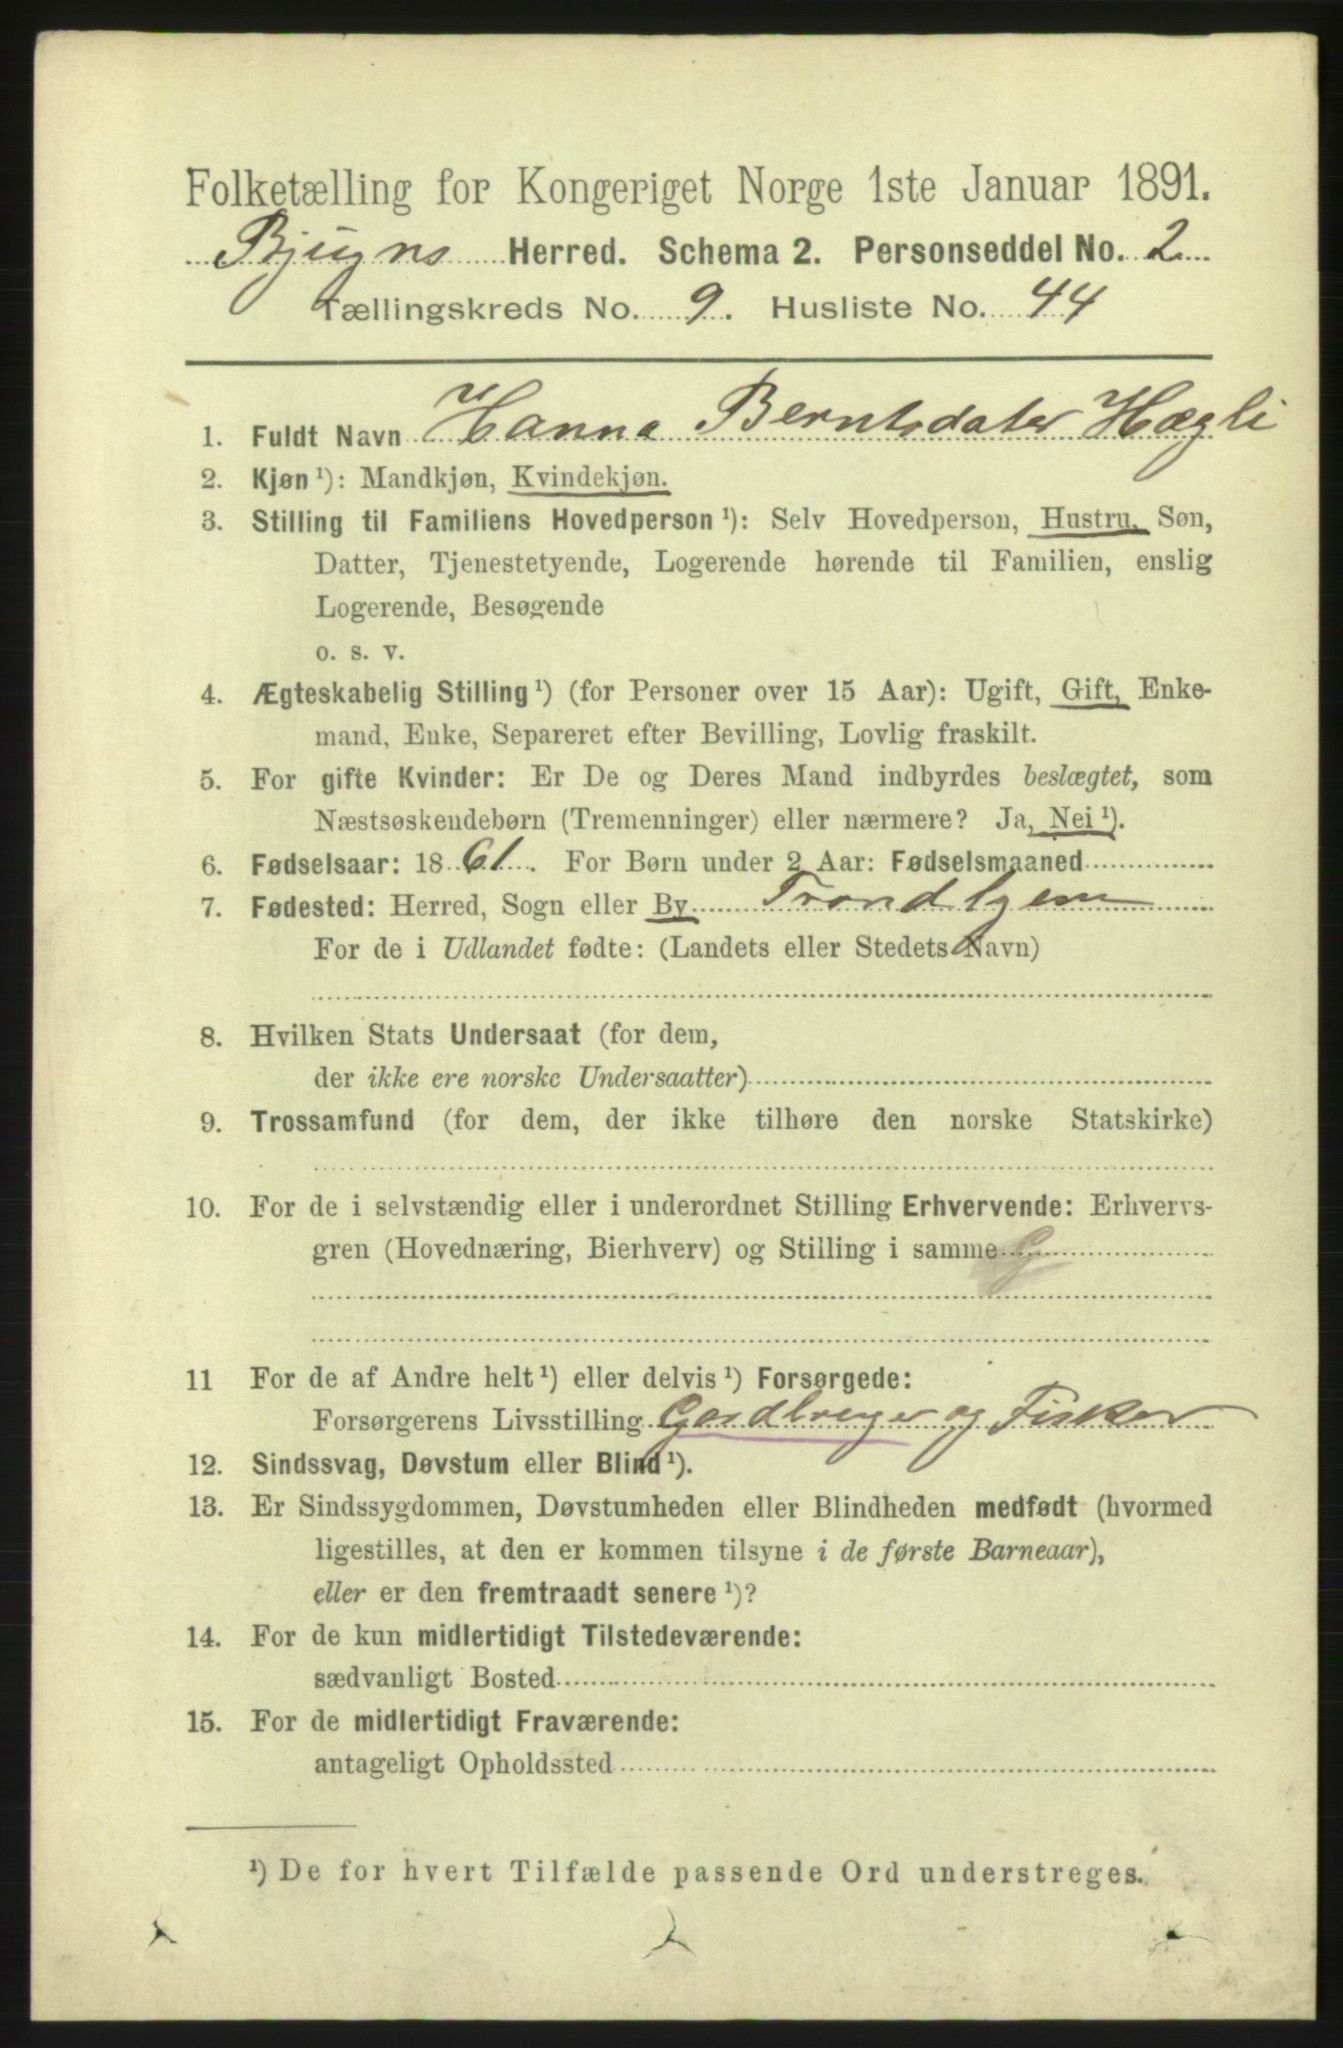 Folketælling for Kongeriget Norge 1ste Januar 1891.
Bjugns Herred. Schema 2. Personseddel No. 2
Tællingskreds No. 9. Husliste No. 44
1. Fuldt Navn Hanna Berntsdater Hægli
2. Kjøn ¹): Mandkjøn, Kvindekjøn.
3. Stilling til Familiens Hovedperson ¹): Selv Hovedperson, Hustru, Søn,
Datter, Tjenestetyende, Logerende hørende til Familien, enslig
Logerende, Besøgende
o. s. v.
4. Ægteskabelig Stilling ¹) (for Personer over 15 Aar): Ugift, Gift, Enke-
mand, Enke, Separeret efter Bevilling, Lovlig fraskilt.
5. For gifte Kvinder: Er De og Deres Mand indbyrdes beslægtet, som
Næstsøskendebørn (Tremenninger) eller nærmere? Ja, Nei ¹).
6. Fødselsaar: 1861. For Børn under 2 Aar: Fødselsmaaned
7. Fødested: Herred, Sogn eller By Trondhjem
For de i Udlandet fødte: (Landets eller Stedets Navn)
8. Hvilken Stats Undersaat (for dem,
der ikke ere norske Undersaatter)
9. Trossamfund (for dem, der ikke tilhøre den norske Statskirke)
10. For de i selvstændig eller i underordnet Stilling Erhvervende: Erhvervs-
gren (Hovednæring, Bierhverv) og Stilling i samme G
11 For de af Andre helt ¹) eller delvis ¹) Forsørgede:
Forsørgerens Livsstilling Gardbruger og Fisker
12. Sindssvag, Døvstum eller Blind ¹).
13. Er Sindssygdommen, Døvstumheden eller Blindheden medfødt (hvormed
ligestilles, at den er kommen tilsyne i de første Barneaar),
eller er den fremtraadt senere ¹)?
14. For de kun midlertidigt Tilstedeværende:
sædvanligt Bosted
15. For de midlertidigt Fraværende:
antageligt Opholdssted
¹) De for hvert Tilfælde passende Ord understreges.